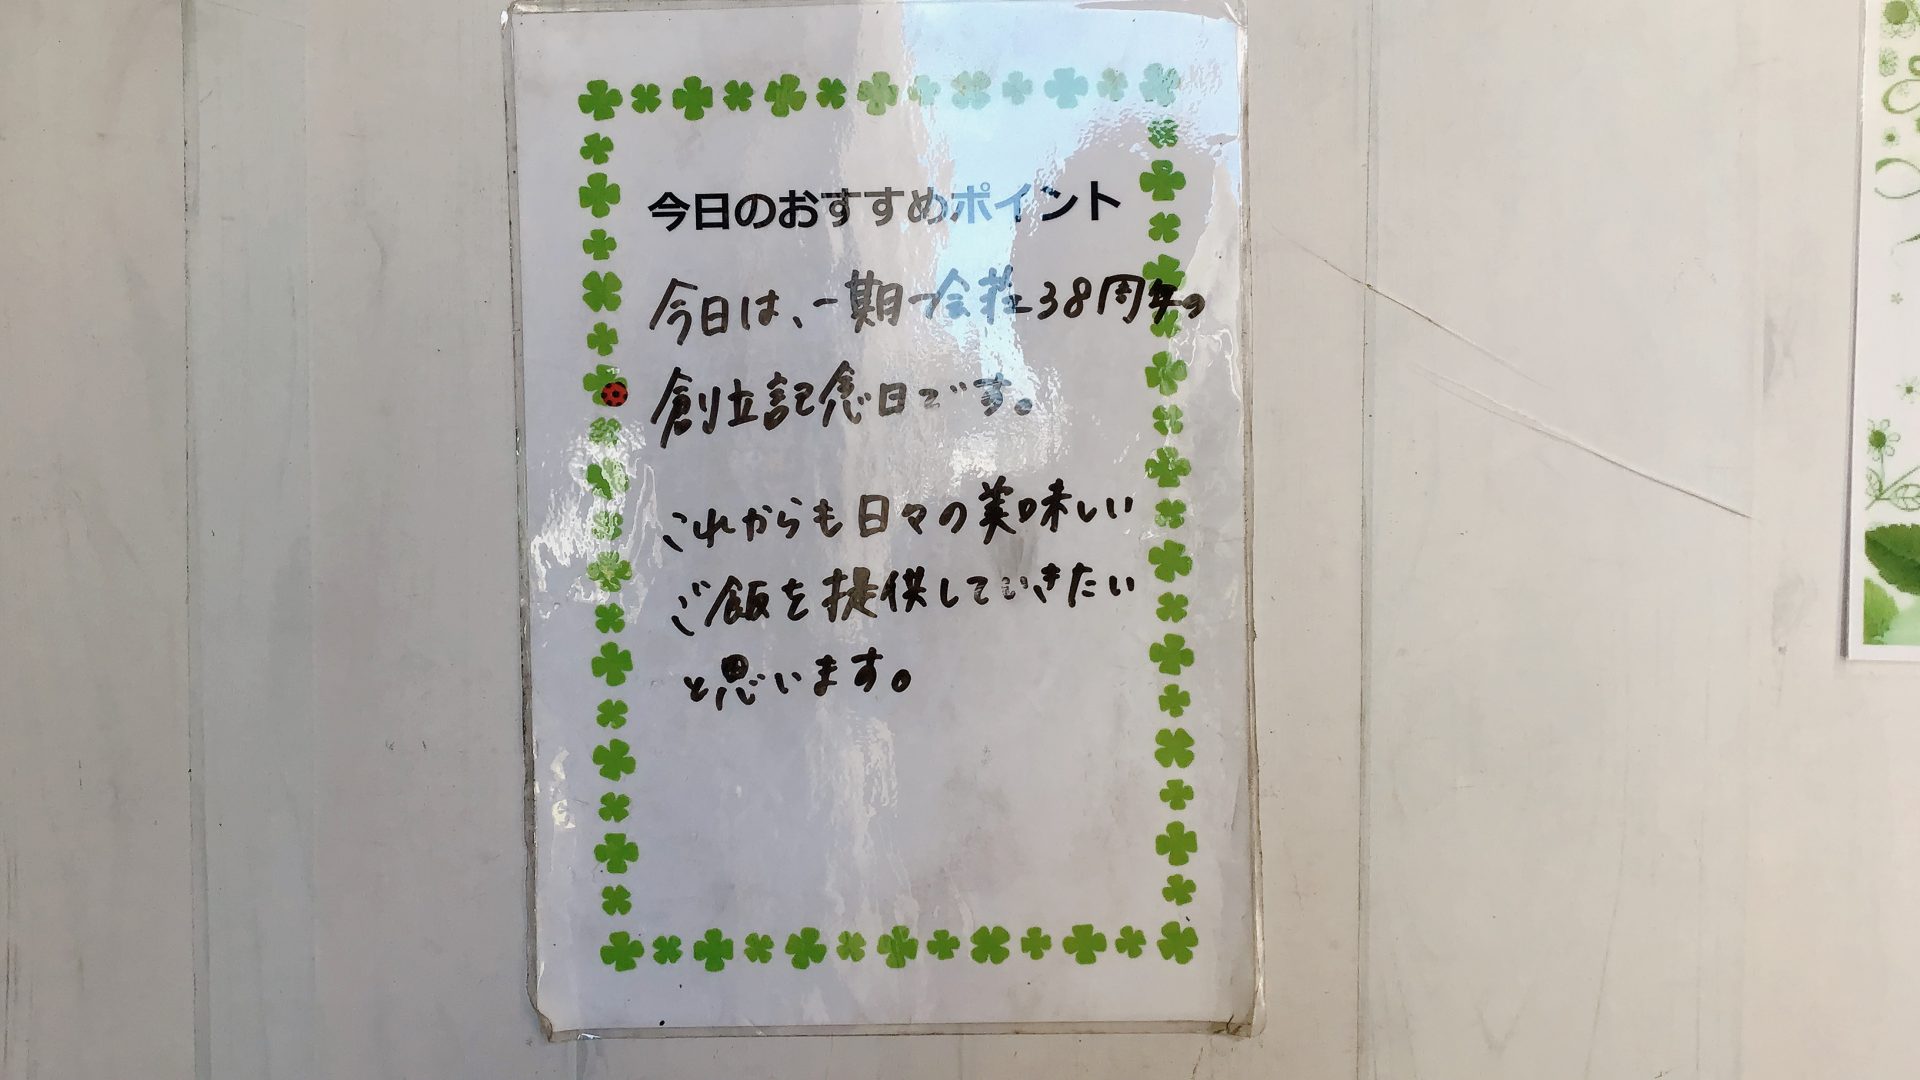 今日のおすすめポイント
今日は、一期一会荘38周年の
創立記念日です。
これからも日々の美味しい
ご飯を提供していきたい
と思います。